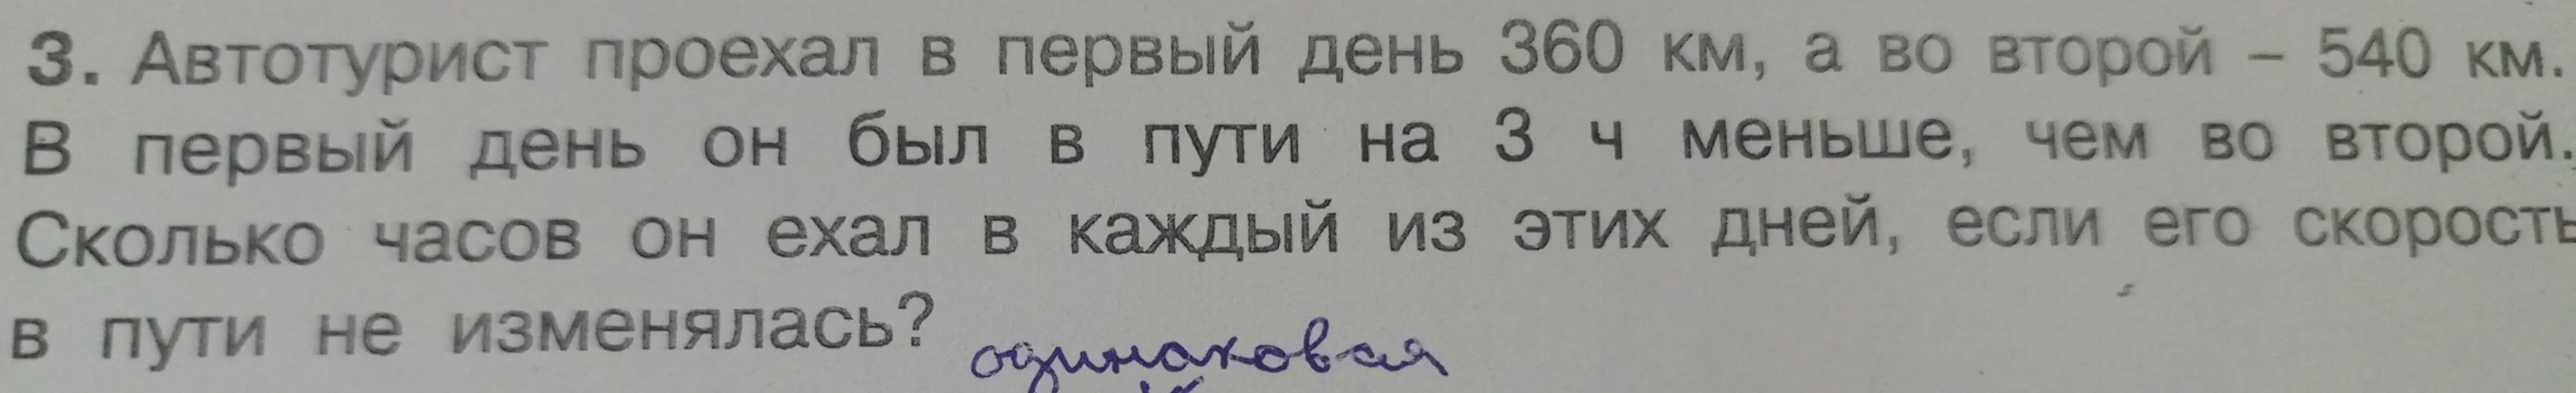 3. Автотурист проехал в первый день 360 км, а во второй – 540 км.
В первый день он был в пути на 3 ч меньше, чем во второй.
Сколько часов он ехал в каждый из этих дней, если его скорость
в пути не изменялась?
одинаковая